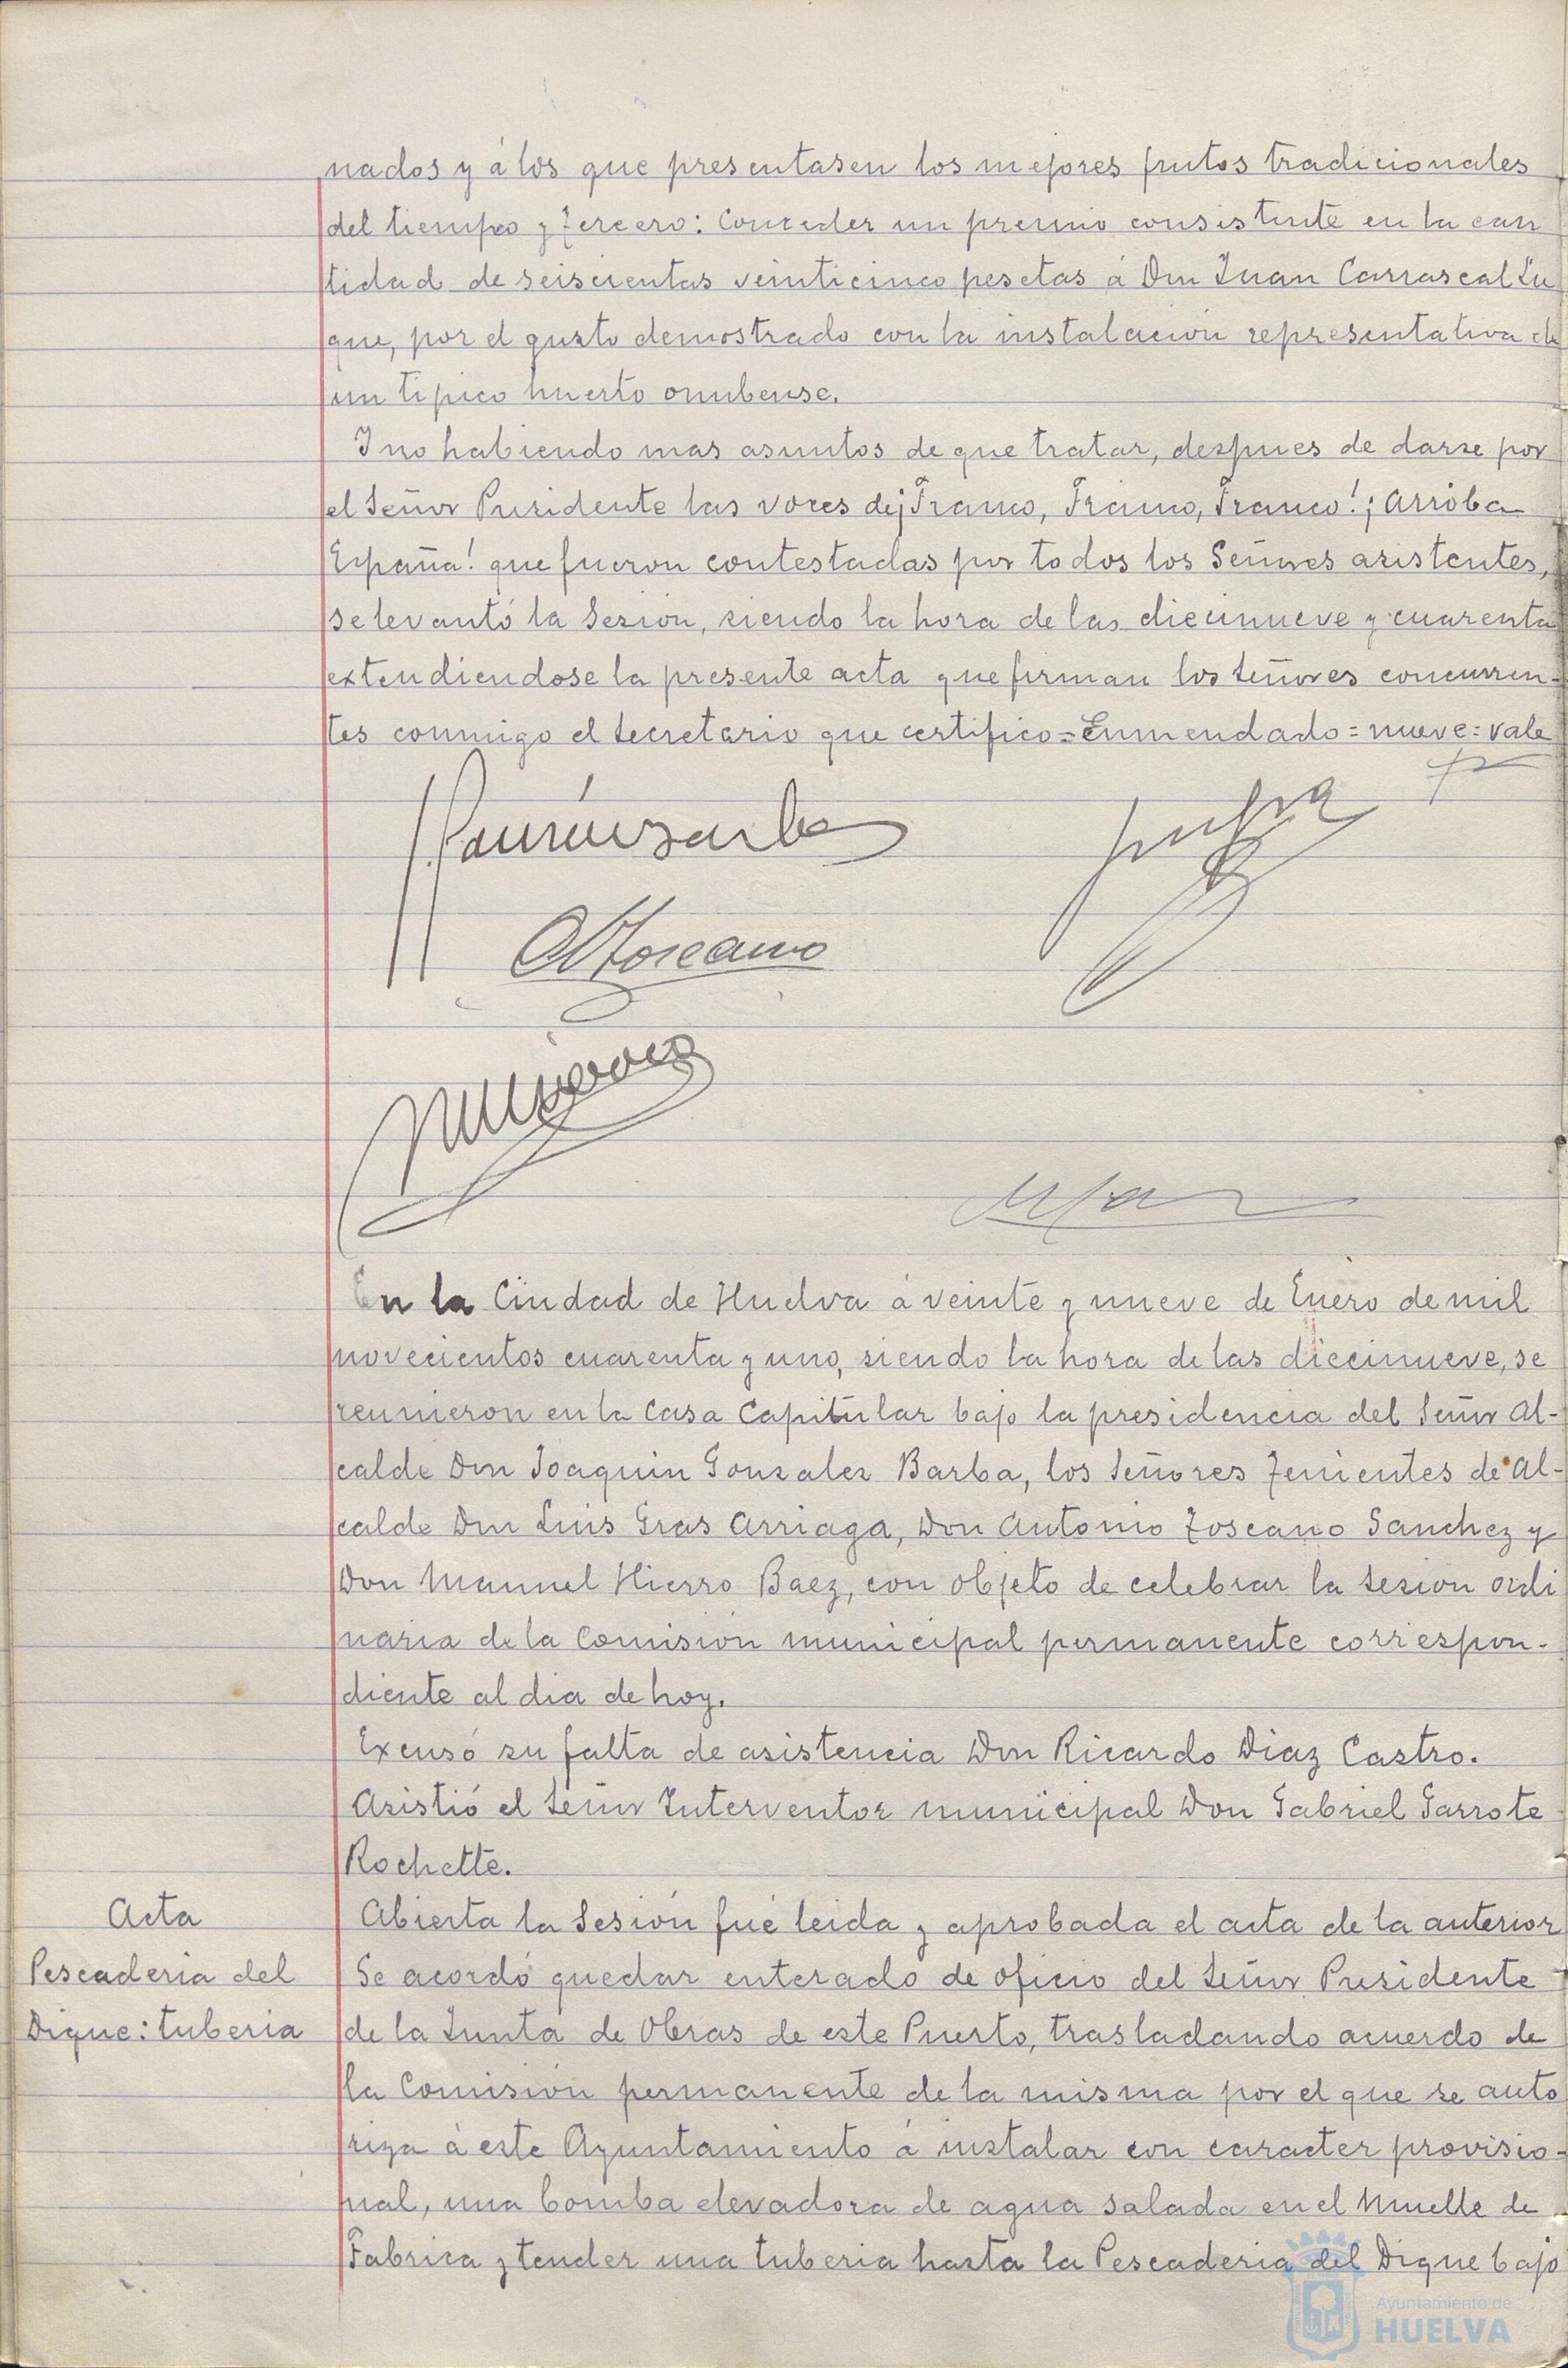 nados y á los que presentasen los mejores frutos tradicionales
del tiempo y Tercero: Conceder un premio consistente en la can
tidad de seiscientas veinticinco pesetas á Don Juan Carrascal Lu
que, por el gusto demostrado con la instalación representativa de
un tipico huerto onubense.
Y no habiendo mas asuntos de que tratar, despues de darse por
el Señor Presidente las voces de ¡Franco, Franco, Franco! ¡Arriba
España! que fueron contestadas por todos los Señores asistentes,
se levantó la Sesión, siendo la hora de las diecinueve y cuarenta
extendiendose la presente acta que firman los Señores concurren-
tes conmigo el Secretario que certifico = Enmendado = nueve = vale
AToscano
En la Ciudad de Huelva á veinte y nueve de Enero de mil
novecientos cuarenta y uno, siendo la hora de las diecinueve, se
reunieron en la Casa Capitular bajo la presidencia del Señor Al-
calde Don Joaquin Gonzalez Barba, los Señores Tenientes de Al-
calde Don Luis Gras Arriaga, Don Antonio Toscano Sanchez y
Don Manuel Hierro Baez, con objeto de celebrar la sesion ordi
naria de la Comisión municipal permanente correspon-
diente al dia de hoy.
Excusó su falta de asistencia Don Ricardo Diaz Castro.
Asistió el Señor Interventor municipal Don Gabriel Garrote
Rochette.
Acta
Abierta la Sesión fué leida y aprobada el acta de la anterior
Pescaderia del
Dique: tuberia
Se acordó quedar enterado de oficio del Señor Presidente
de la Junta de Obras de este Puerto, trasladando acuerdo de
la Comisión permanente de la misma por el que se auto
riza á este Ayuntamiento á instalar con caracter provisio-
nal, una bomba elevadora de agua salada en el Muelle de
Fabrica y tender una tuberia hasta la Pescaderia del Dique bajo
Ayuntamiento de
HUELVA